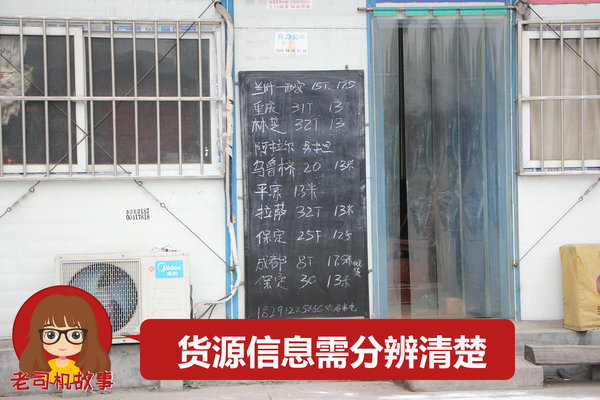 兰州一西安 15T 17.5
重庆 31T 13
林芝 32T 13
阿拉尔
乌鲁木齐 20 13米
平凉 13米
拉萨 32T 13米
保定 25T 17.5
成都 8T 17.5米
保定 30 13米
Midea
美的
货源信息需分辨清楚
老司机故事